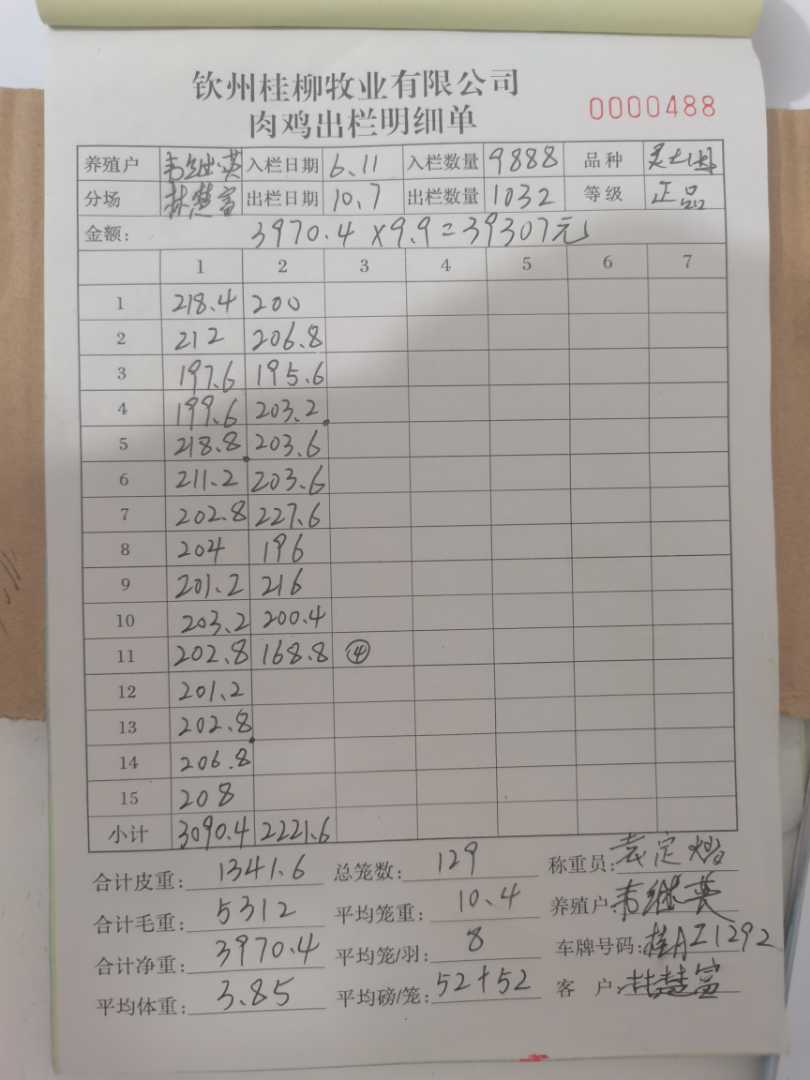 钦州桂柳牧业有限公司
肉鸡出栏明细单
0000488
养殖户 韦继英 入栏日期 6.11 入栏数量 9888 品种 灵土
分场 林慧富 出栏日期 10.7 出栏数量 1032 等级 正品
金额: 3970.4×9.9=39307元
1 2 3 4 5 6 7
1 218.4 200
2 212 206.8
3 197.6 195.6
4 199.6 203.2
5 218.8 203.6
6 211.2 203.6
7 202.8 227.6
8 204 196
9 201.2 216
10 203.2 200.4
11 202.8 168.8 ④
12 201.2
13 202.8
14 206.8
15 208
小计 3090.4 2221.6
合计皮重: 1341.6 总笼数: 129 称重员: 袁定
合计毛重: 5312 平均笼重: 10.4 养殖户: 韦继英
合计净重: 3970.4 平均笼/羽: 8 车牌号码: 桂AZ1292
平均体重: 3.85 平均磅/笼: 52+52 客户: 林慧富